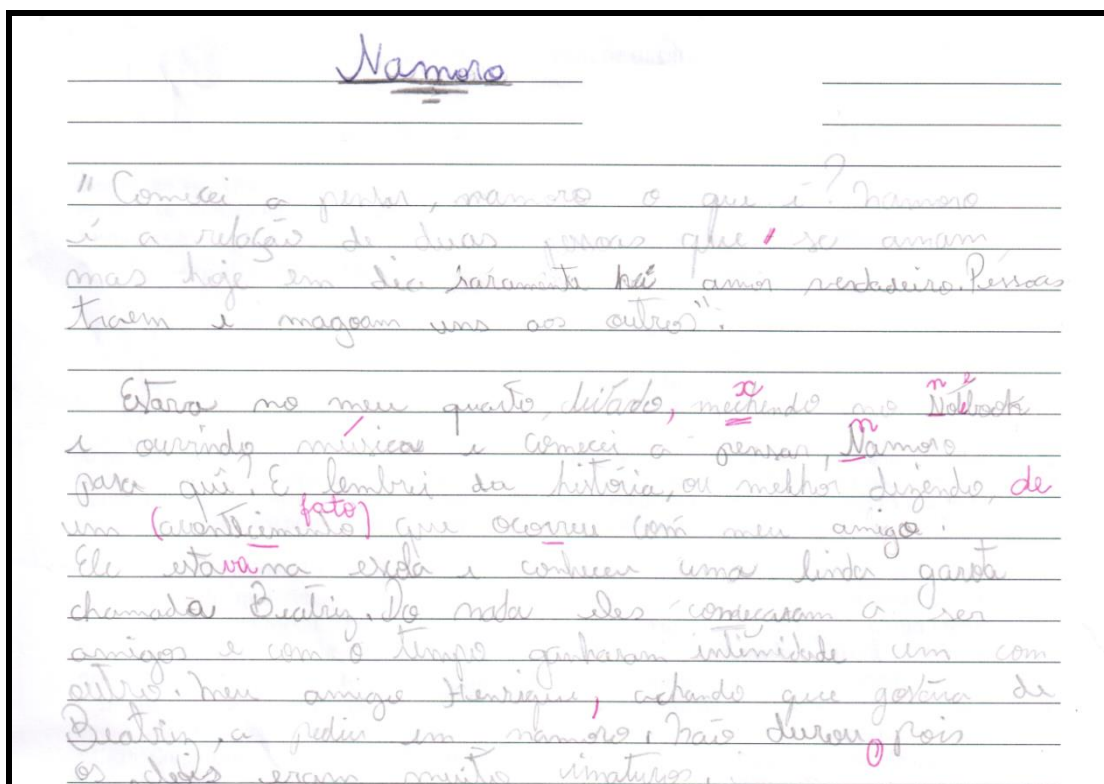 Namoro
"Comecei a pensar, namoro o que é? Namoro
é a relação de duas pessoas que se amam
mas hoje em dia raramente há amor verdadeiro. Pessoas
traem e magoam uns aos outros".
Estava no meu quarto, deitado, mechendo no Notebook
x
n e
e ouvindo músicas e comecei a pensar, Namoro
n
para quê? E lembrei da história, ou melhor dizendo, de
um (acontecimento) que ocorreu com meu amigo.
fato
Ele estava na escola e conheceu uma linda garota
chamada Beatriz. Do nada eles começaram a ser
amigos e com o tempo ganharam intimidade um com
outro. Meu amigo Henrique, achando que gostava de
Beatriz, a pediu em namoro. Não durou, pois
os dois eram muito imaturos.